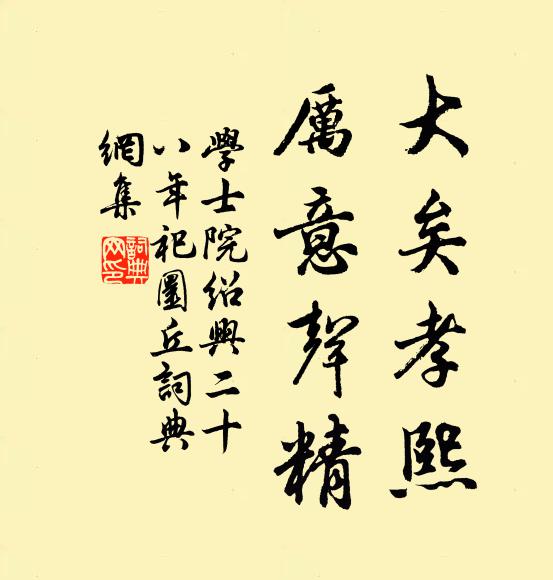 大矣孝熙
厲意聲精
學士院紹興二十
八年祀圜丘詞典
網集
詞典
网印